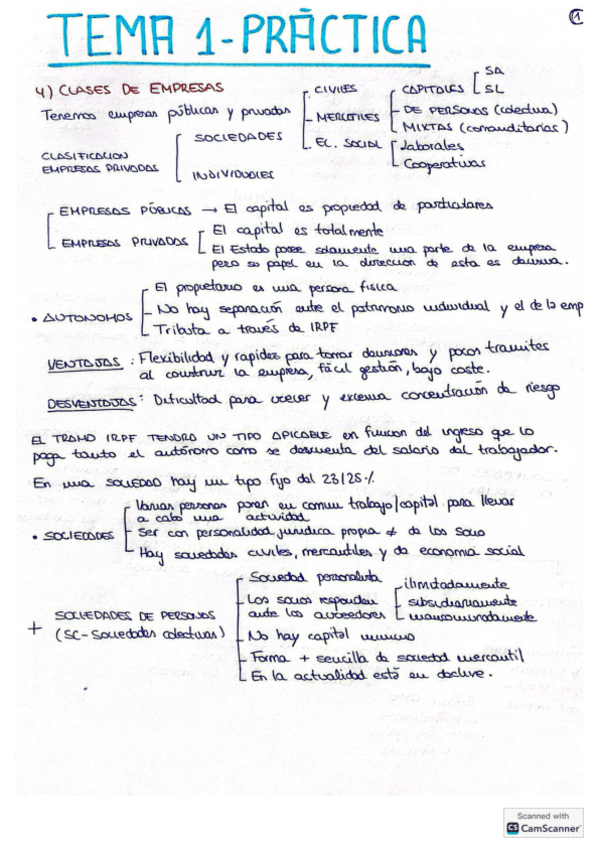 TEMA 1-PRÁCTICA
1
4) CLASES DE EMPRESAS
Tenemos empresas públicas y privadas
CLASIFICACION
EMPRESAS PRIVADAS
SOCIEDADES
INDIVIDUALES
CIVILES
MERCATILES
EC. SOCIAL
CAPITALES
SA
SL
DE PERSONAS (colectiva)
MIXTAS (comanditarias)
laborales
Cooperativas
EMPRESAS PÚBLICAS → El capital es propiedad de particulares
EMPRESAS PRIVADAS
El capital es totalmente
El Estado posee solamente una parte de la empresa
pero su papel en la dirección de esta es decisiva.
• AUTONOMOS
El propietario es una persona fisica
No hay separación entre el patrimonio individual y el de la emp
Tributa a través de IRPF
VENTAJAS : Flexibilidad y rapidez para tomar decisiones y pocos tramites
al construir la empresa, fácil gestión, bajo coste.
DESVENTAJAS: Dificultad para crecer y excesiva concentración de riesgo
EL TRAMO IRPF TENDRA UN TIPO APLICABLE en funcion del ingreso que lo
paga tanto el autónomo como se descuenta del salario del trabajador.
En una SOCIEDAD hay un tipo fijo del 23/25 %
• SOCIEDADES
Varias personas ponen en comun trabajo/capital para llevar
a cabo una actividad
Ser con personalidad juridica propia ≠ de los socio
Hay sociedades civiles, mercantiles y de economia social
+ SOCIEDADES DE PERSONAS
(SC-Sociedades colectivas)
Sociedad personalista
Los socios responden
ante los acreedores
ilimitadamente
subsidiariamente
mancomunadamente
No hay capital minimo
Forma + sencilla de sociedad mercantil
En la actualidad está en declive.
Scanned with
CS CamScanner